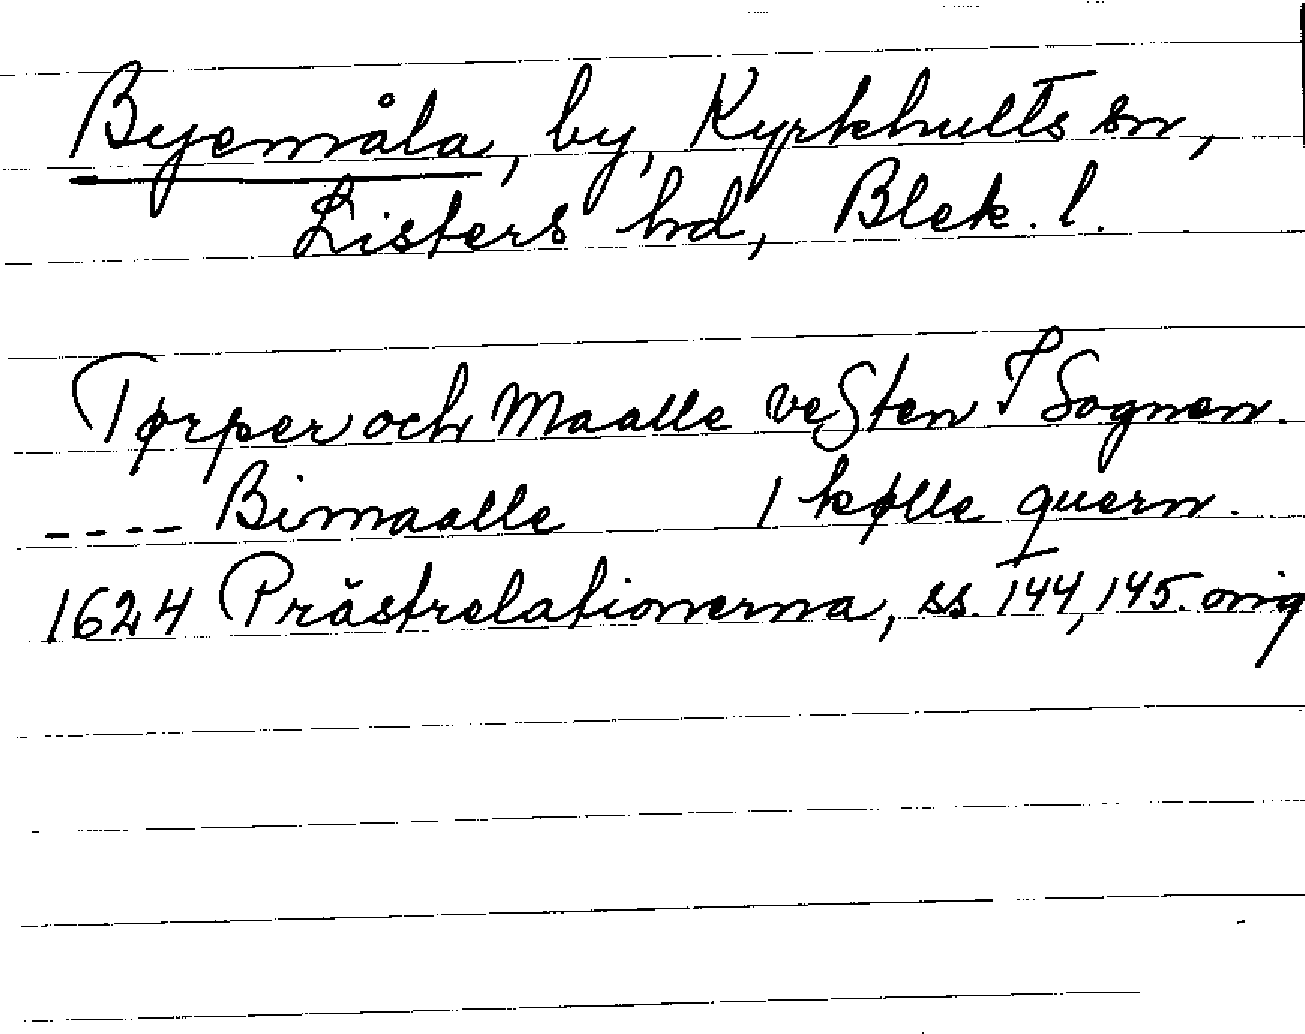 Byemåla, by, Kyrkhults sn,
Listers hd, Blek. l.
Tørper och Maalle veSten I Sognen.
---- Bimaalle 1 kølle quern.
1624 Prästrelationerna, ss. 144, 145. orig